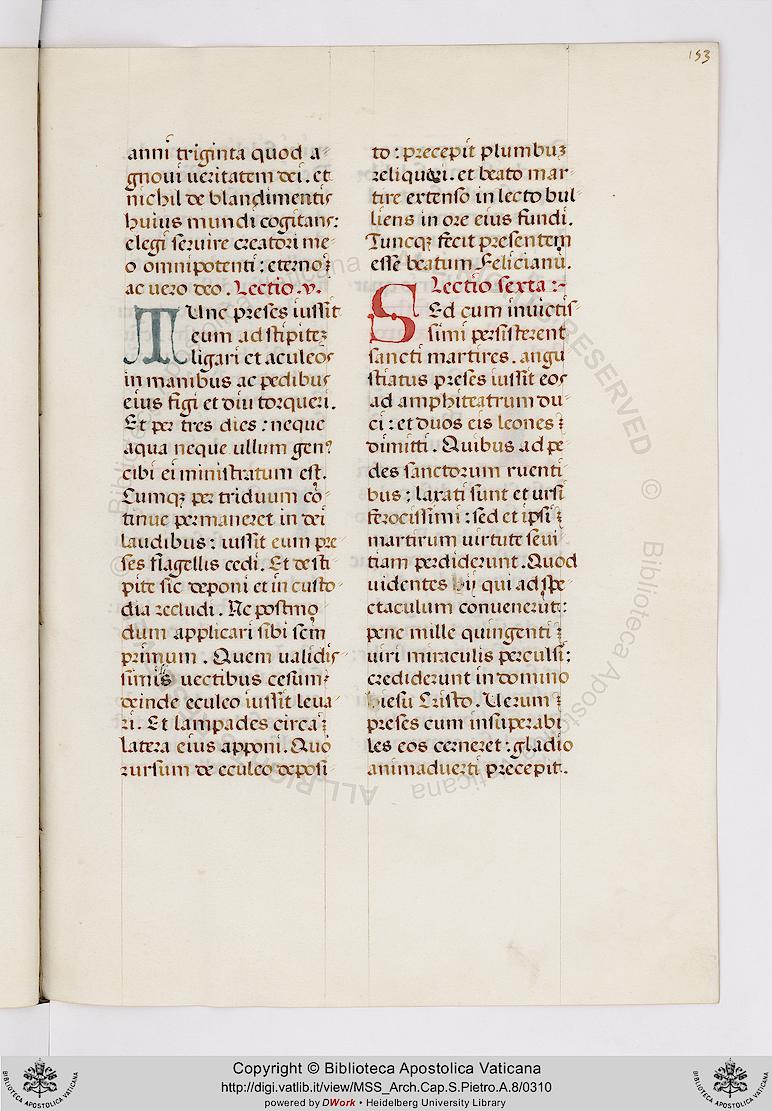 153
anni triginta quod a⸗
gnoui ueritatem dei. et
nichil de blandimentis
huius mundi cogitans:
elegi seruire creatori me⸗
o omnipotenti: eterno
ac uero deo. Lectio .v.
TUnc preses iussit
eum ad stipitez
ligari et aculeos
in manibus ac pedibus
eius figi et diu torqueri.
Et per tres dies: neque
aqua neque ullum gen⁹
cibi ei ministratum est.
Cumqꝫ per triduum cō⸗
tinue permaneret in dei
laudibus: iussit eum pre⸗
ses flagellis cedi. Et de sti⸗
pite sic deponi et in custo⸗
dia recludi. Ac postmo⸗
dum applicari sibi secū
primum. Quem ualidis⸗
simis uectibus cesum⸗
deinde eculeo iussit leua⸗
ri. Et lampades circa
latera eius apponi. Quo
rursum de eculeo deposi
to: precepit plumbuꝫ
reliqueri. et beato mar⸗
tire extenso in lecto bul⸗
liens in ore eius fundi.
Tuncqꝫ fecit presentem
esse beatum Felicianū.
Lectio sexta:⸗
SEd cum inuictis⸗
simi persisterent
sancti martires. angu
stiatus preses iussit eos
ad amphiteatrum du⸗
ci: et duos eis leones
dimitti. Quibus ad pe⸗
des sanctorum ruenti⸗
bus: laxati sunt et ursi
ferocissimi: sed et ipsi
martirum uirtute seui⸗
tiam perdiderunt. Quod
uidentes hij qui ad spe⸗
ctaculum conuenerūt:
pene mille quingenti
uiri miraculis perculsi:
crediderunt in domino
hiesu Cristo. Uerum
preses cum insuperabi
les eos cerneret: gladio
animaduerti precepit.
© Biblioteca Apostolica Vaticana
ALL RIGHTS RESERVED
BIBLIOTECA APOSTOLICA VATICANA
Copyright © Biblioteca Apostolica Vaticana
http://digi.vatlib.it/view/MSS_Arch.Cap.S.Pietro.A.8/0310
powered by DWork • Heidelberg University Library
BIBLIOTECA APOSTOLICA VATICANA